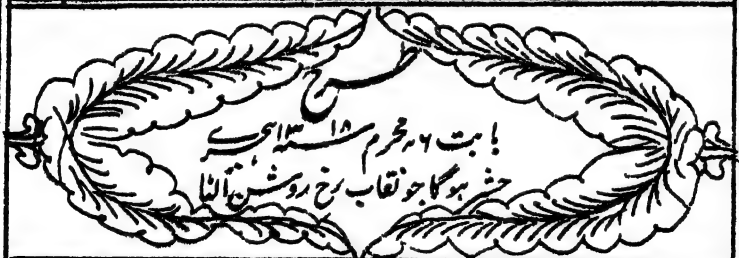 طرح
بابت ۶؍ محرم ۱۳۱۸؁ ہجری
حشر ہوگا جو نقاب رخ روشن اُلٹا